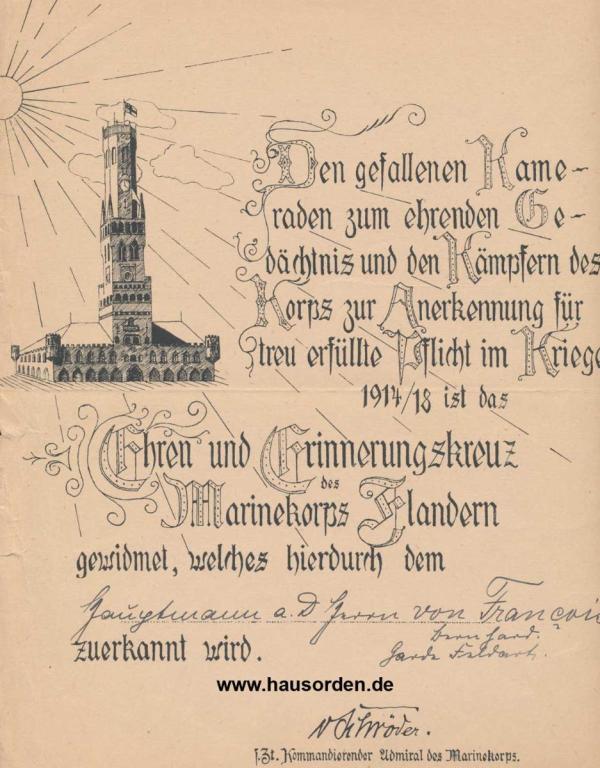 Den gefallenen Kame-
raden zum ehrenden Ge-
dächtnis und den Kämpfern des
Korps zur Anerkennung für
treu erfüllte Pflicht im Kriege
1914/18 ist das
Ehren und Erinnerungskreuz
des
Marinekorps Flandern
gewidmet, welches hierdurch dem
Hauptmann a. D Herrn von Francois
Bernhard.
zuerkannt wird.
Garde Feldart.
www.hausorden.de
v Schröder.
s. Zt. Kommandierender Admiral des Marinekorps.